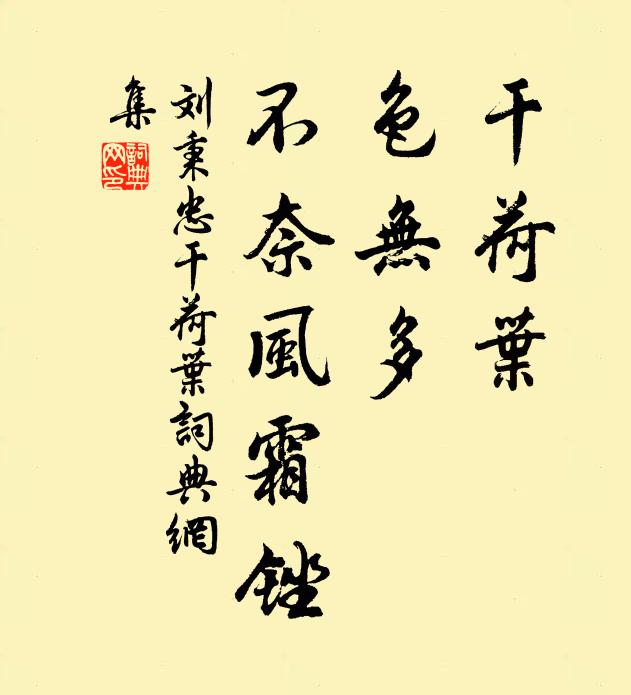 干荷葉
色無多
不奈風霜銼
刘秉忠干荷葉詞典網
集
詞典網印